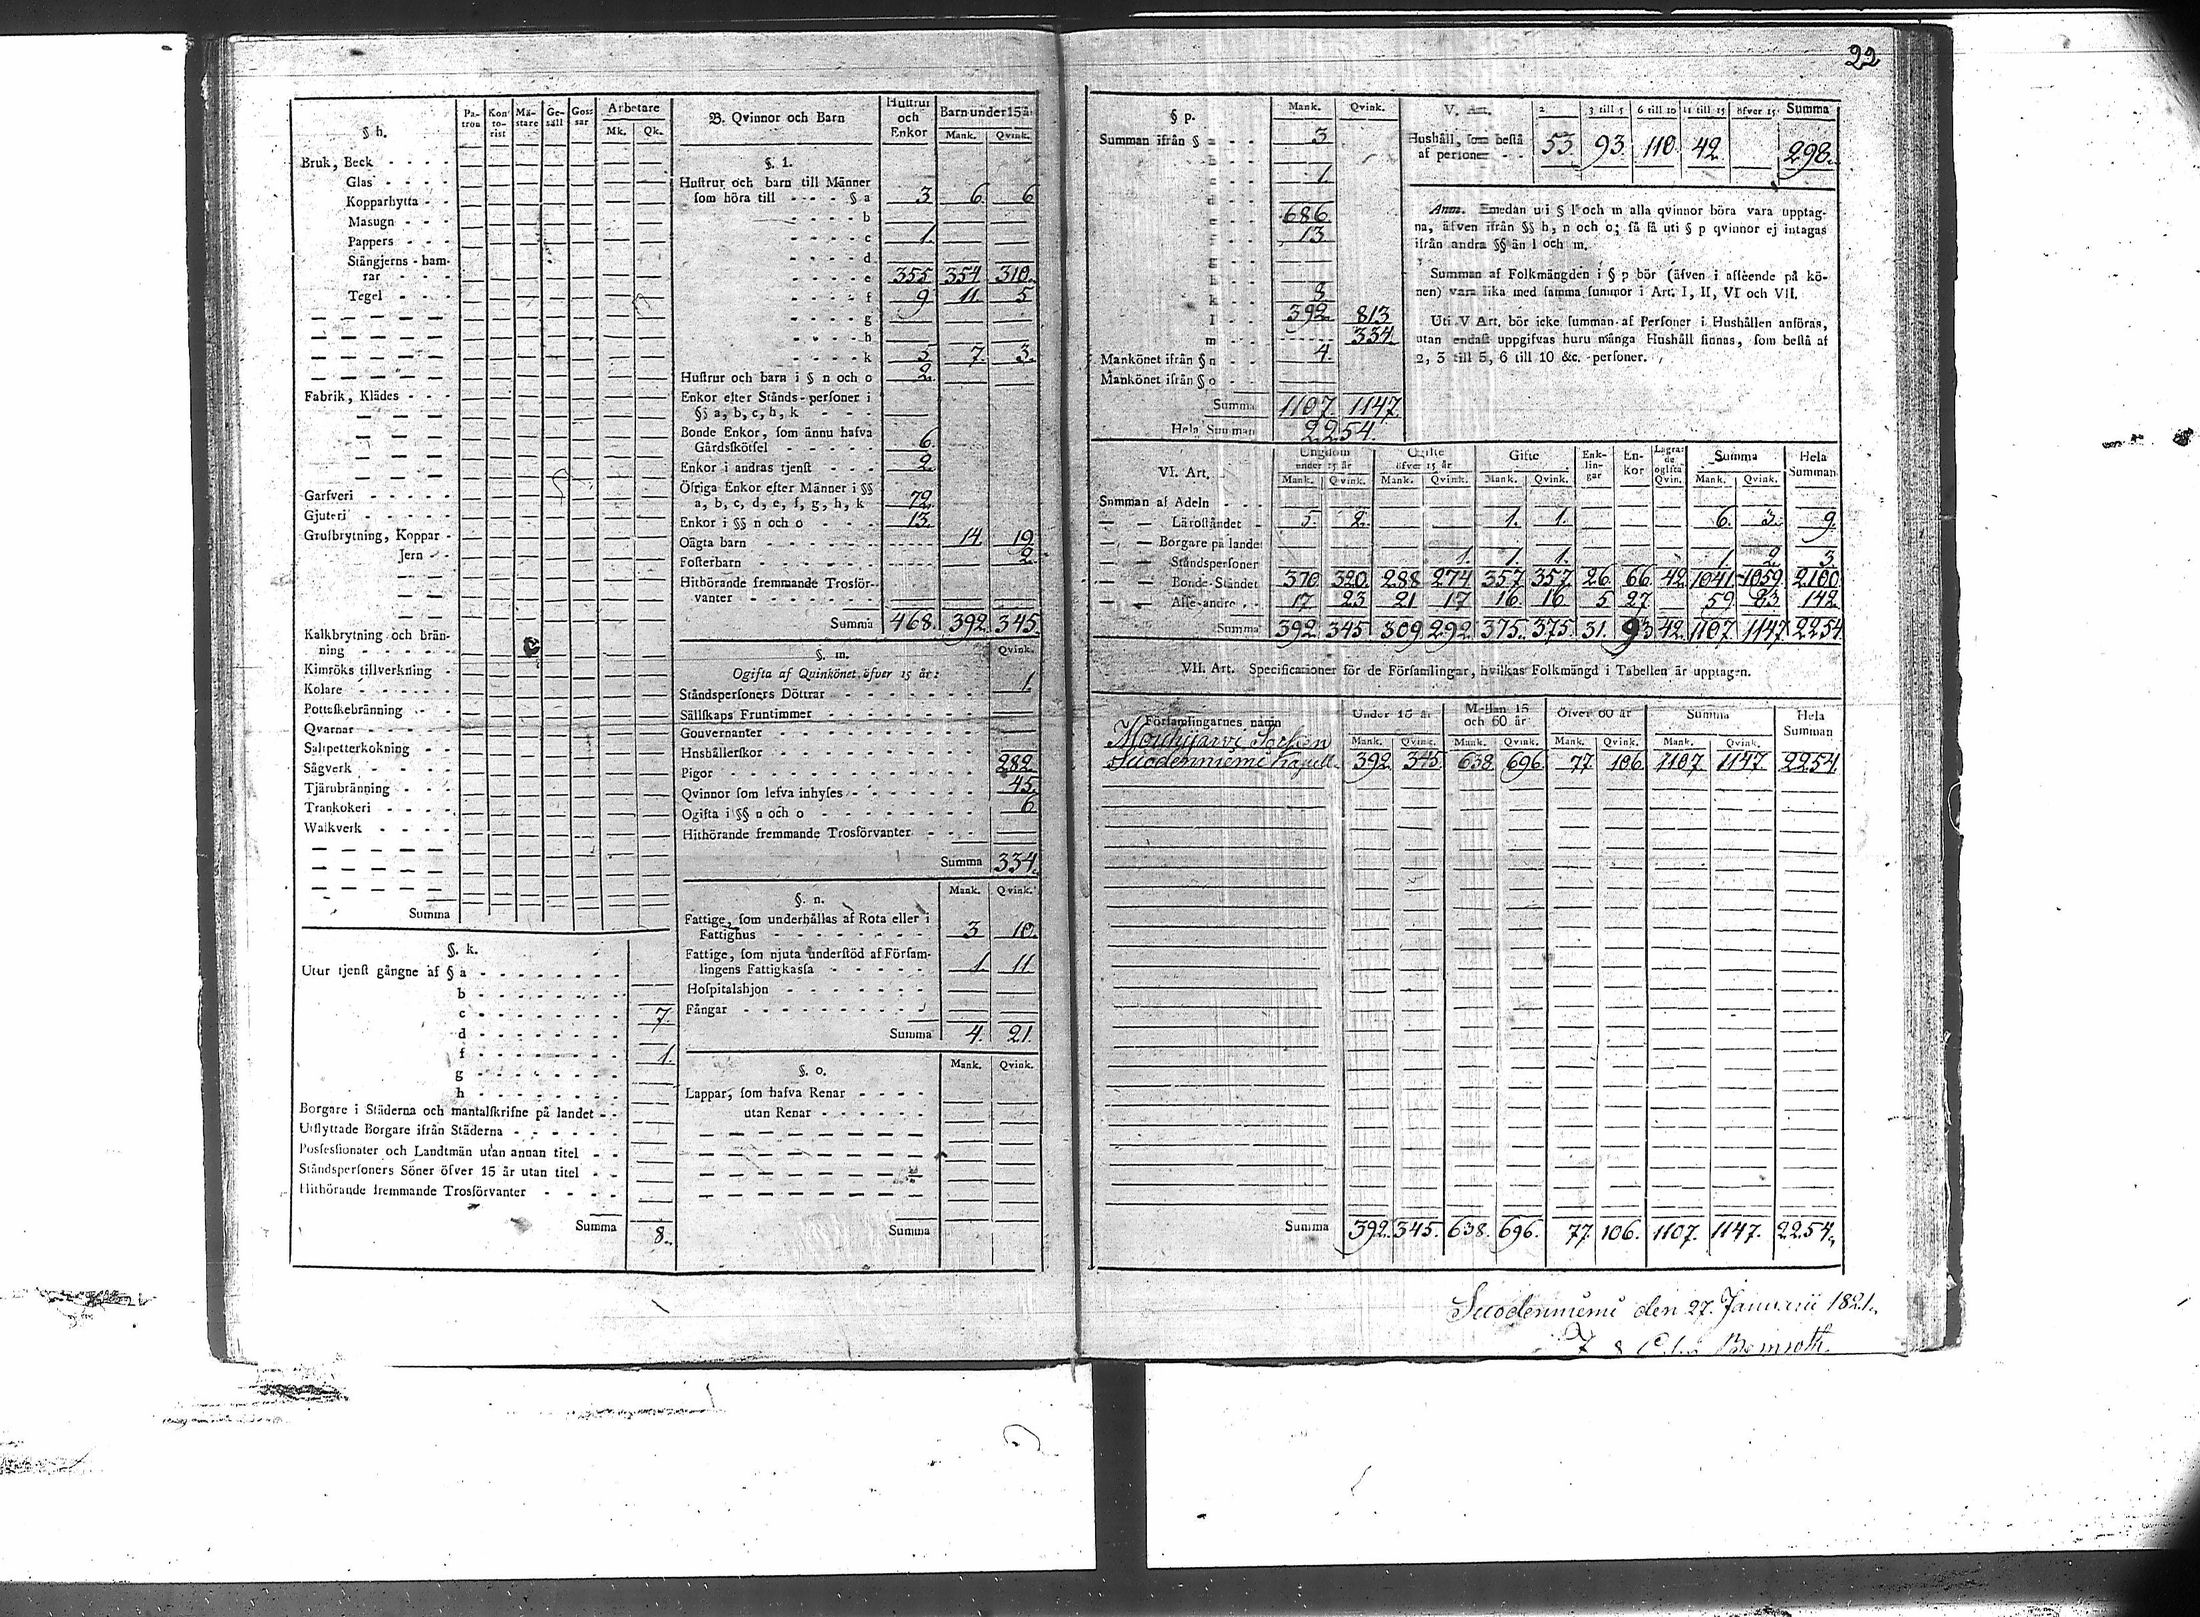 22
§ h.
Patron Kontorist Mästare Gesäll Gossar Arbetare
Mk. Qk.
Bruk, Beck
Glas
Kopparhytta
Masugn
Pappers
Stångjerns-hamrar
Tegel
Fabrik, Klädes
Garfveri
Gjuteri
Grufbrytning, Koppar
Jern
Kalkbrytning och bränning
Kimröks tillverkning
Kolare
Pottaskebränning
Qvarnar
Saltpetterkokning
Sågverk
Tjärubränning
Trankokeri
Walkverk
Summa
§. k.
Utur tjenst gångne af § a
b
c 7.
d
f 1.
g
h
Borgare i Städerna och mantalskrifne på landet
Utflyttade Borgare ifrån Städerna
Possessionater och Landtmän utan annan titel
Ståndspersoners Söner öfver 15 år utan titel
Hithörande fremmande Trosförvanter
Summa 8.
B. Qvinnor och Barn
Hustrur och Enkor
Barn under 15 år
Mank. Qvink.
§. l.
Hustrur och barn till Männer
som höra till § a 3 6 6
b
c 1.
d
e 355 354 310.
f 9 11 5
g
h
k 5 7. 3.
Hustrur och barn i § n och o 2.
Enkor efter Stånds-personer i
§§ a, b, c, h, k
Bonde Enkor, som ännu hafva
Gårdsskötsel 6.
Enkor i andras tjenst 2.
Öfriga Enkor efter Männer i §§
a, b, c, d, e, f, g, h, k 72.
Enkor i §§ n och o 13.
Oägta barn 14. 19
Fosterbarn 2.
Hithörande fremmande Trosförvanter
Summa 468. 392. 345.
§. m. Qvink.
Ogifta af Qvinkönet, öfver 15 år:
Ståndspersoners Döttrar 1.
Sällskaps Fruntimmer
Gouvernanter
Hushållerskor
Pigor 282.
Qvinnor som lefva inhyses 45.
Ogifta i §§ n och o 6
Hithörande fremmande Trosförvanter
Summa 334.
Mank. Qvink.
§. n.
Fattige, som underhållas af Rota eller i
Fattighus 3 10.
Fattige, som njuta understöd af Församlingens Fattigkassa 1. 11
Hospitalshjon
Fångar
Summa 4. 21.
Mank. Qvink.
§. o.
Lappar, som hafva Renar
utan Renar
Summa
§ p. Mank. Qvink.
Summan ifrån § a 3
b
1.
686
13.
h
k 8
l 392. 813
m 334.
Mankönet ifrån § n 4.
Mankönet ifrån § o
Summa 1107. 1147.
Hela Summan 2254.
V. Art. 2 3 till 5 6 till 10 11 till 15 öfver 15 Summa
Hushåll, som bestå
af personer 53. 93. 110. 42. 298.
Anm. Emedan uti § l och m alla qvinnor böra vara upptagna, äfven ifrån §§ h, n och o; så få uti § p qvinnor ej intagas
ifrån andra §§ än l och m.
Summan af Folkmängden i § p bör (äfven i afseende på könen) vara lika med samma summor i Art. I, II, VI och VII.
Uti V Art. bör icke summan af Personer i Hushållen anföras,
utan endast uppgifvas huru många Hushåll finnas, som bestå af
2, 3 till 5, 6 till 10 &c. personer.
VI. Art.
Ungdom under 15 år Ogifte öfver 15 år Gifte Enklingar Enkor Lägrade ogifta Qvin. Summa Hela Summan
Mank. Qvink. Mank. Qvink. Mank. Qvink. Mank. Qvink.
Summan af Adeln
— — Lärostándet 5. 2. 1. 1. 6. 3. 9.
— — Borgare på landet
— — Ståndspersoner 1. 1. 1. 1. 2. 3.
— — Bonde-Ståndet 370 320. 288 274 357. 357. 26. 66. 42. 1041 1059. 2100.
— — Alle andre 17 23 21 17 16. 16. 5 27. 59 83 142.
Summa 392. 345 309 292. 375. 375. 31. 93 42. 1107. 1147 2254.
VII. Art. Specificationer för de Församlingar, hvilkas Folkmängd i Tabellen är upptagen.
Församlingarnes namn Under 15 år Mellan 15 och 60 år Öfver 60 år Summa Hela Summan
Mank. Qvink. Mank. Qvink. Mank. Qvink. Mank. Qvink.
Mouhijärvi Sockn
Suodenniemi Kapell. 392. 345. 638. 696. 77. 106. 1107 1147 2254.
Summa 392. 345. 638. 696. 77. 106. 1107. 1147. 2254.
Suodenniemi den 27. Januarii 1821.